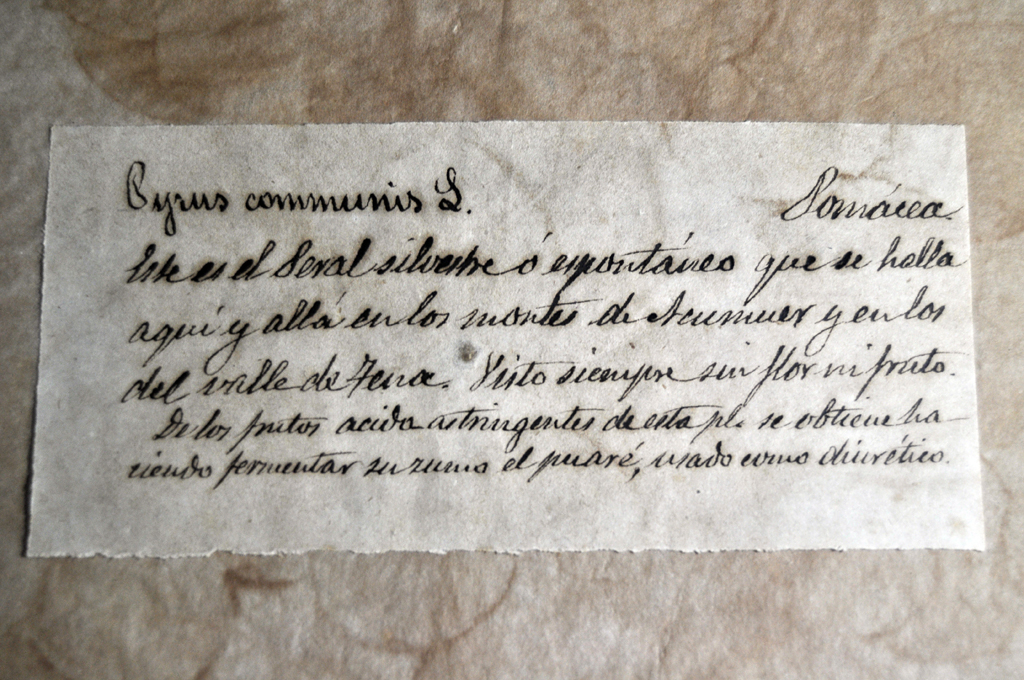 Pyrus communis L. Pomácea.
Este es el Peral silvestre ó espontáneo que se halla
aquí y allá en los montes de Acumuer y en los
del valle de Tena. Visto siempre sin flor ni fruto.
De los frutos acido astringentes de esta pl. se obtiene ha-
ciendo fermentar su zumo el puaré, usado como diurético.